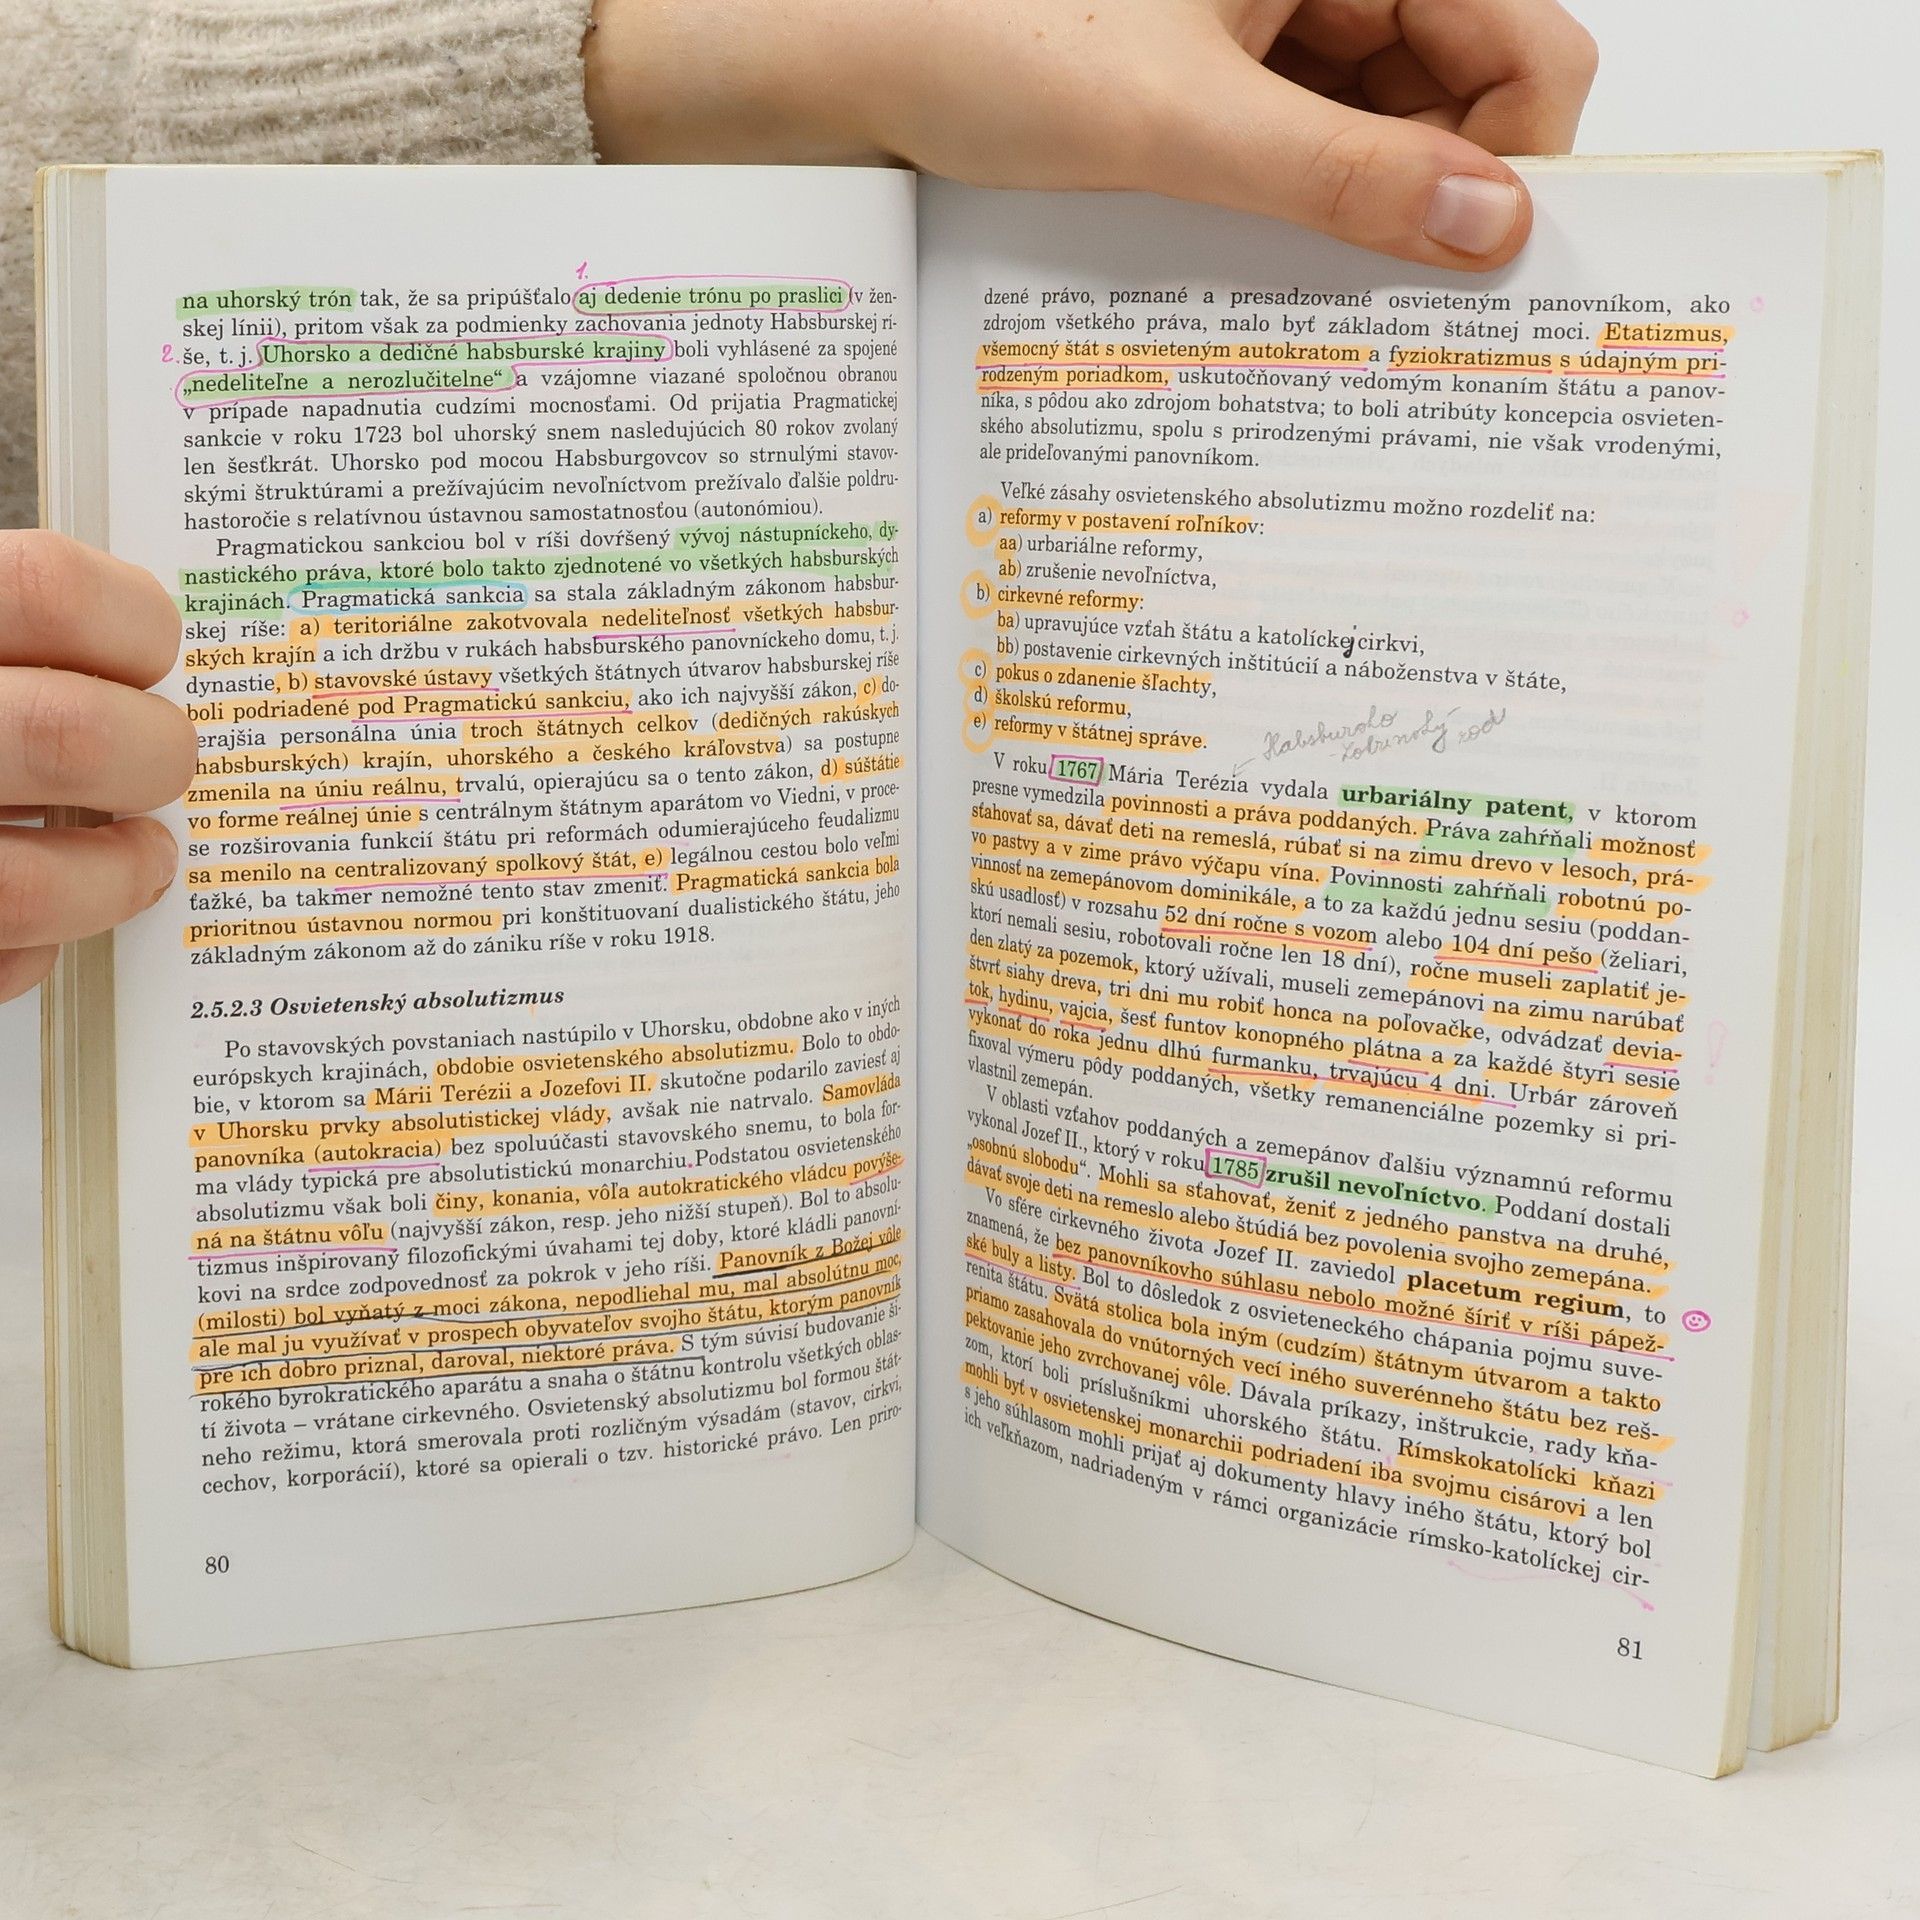 1.
na uhorský trón tak, že sa pripúšťalo aj dedenie trónu po praslici (v žen-
skej línii), pritom však za podmienky zachovania jednoty Habsburskej rí-
2. še, t. j. Uhorsko a dedičné habsburské krajiny boli vyhlásené za spojené
„nedeliteľne a nerozlučitelne“ a vzájomne viazané spoločnou obranou
v prípade napadnutia cudzími mocnosťami. Od prijatia Pragmatickej
sankcie v roku 1723 bol uhorský snem nasledujúcich 80 rokov zvolaný
len šesťkrát. Uhorsko pod mocou Habsburgovcov so strnulými stavov-
skými štruktúrami a prežívajúcim nevoľníctvom prežívalo ďalšie poldru-
hastoročie s relatívnou ústavnou samostatnosťou (autonómiou).
Pragmatickou sankciou bol v ríši dovŕšený vývoj nástupníckeho, dy-
nastického práva, ktoré bolo takto zjednotené vo všetkých habsburských
krajinách. Pragmatická sankcia sa stala základným zákonom habsbur-
skej ríše: a) teritoriálne zakotvovala nedeliteľnosť všetkých habsbur-
ských krajín a ich držbu v rukách habsburského panovníckeho domu, t. j.
dynastie, b) stavovské ústavy všetkých štátnych útvarov habsburskej ríše
boli podriadené pod Pragmatickú sankciu, ako ich najvyšší zákon, c) do-
erajšia personálna únia troch štátnych celkov (dedičných rakúskych
habsburských) krajín, uhorského a českého kráľovstva) sa postupne
zmenila na úniu reálnu, trvalú, opierajúcu sa o tento zákon, d) súštátie
vo forme reálnej únie s centrálnym štátnym aparátom vo Viedni, v proce-
se rozširovania funkcií štátu pri reformách odumierajúceho feudalizmu
sa menilo na centralizovaný spolkový štát, e) legálnou cestou bolo veľmi
ťažké, ba takmer nemožné tento stav zmeniť. Pragmatická sankcia bola
prioritnou ústavnou normou pri konštituovaní dualistického štátu, jeho
základným zákonom až do zániku ríše v roku 1918.
2.5.2.3 Osvietenský absolutizmus
Po stavovských povstaniach nastúpilo v Uhorsku, obdobne ako v iných
európskych krajinách, obdobie osvietenského absolutizmu. Bolo to obdo-
bie, v ktorom sa Márii Terézii a Jozefovi II. skutočne podarilo zaviesť aj
v Uhorsku prvky absolutistickej vlády, avšak nie natrvalo. Samovláda
panovníka (autokracia) bez spoluúčasti stavovského snemu, to bola for-
ma vlády typická pre absolutistickú monarchiu. Podstatou osvietenského
absolutizmu však boli činy, konania, vôľa autokratického vládcu povýše-
ná na štátnu vôľu (najvyšší zákon, resp. jeho nižší stupeň). Bol to absolu-
tizmus inšpirovaný filozofickými úvahami tej doby, ktoré kládli panovní-
kovi na srdce zodpovednosť za pokrok v jeho ríši. Panovník z Božej vôle
(milosti) bol vyňatý z moci zákona, nepodliehal mu, mal absolútnu moc,
ale mal ju využívať v prospech obyvateľov svojho štátu, ktorým panovník
pre ich dobro priznal, daroval, niektoré práva. S tým súvisí budovanie ši-
rokého byrokratického aparátu a snaha o štátnu kontrolu všetkých oblas-
tí života – vrátane cirkevného. Osvietenský absolutizmu bol formou štát-
neho režimu, ktorá smerovala proti rozličným výsadám (stavov, cirkvi,
cechov, korporácií), ktoré sa opierali o tzv. historické právo. Len priro-
80
dzené právo, poznané a presadzované osvieteným panovníkom, ako
zdrojom všetkého práva, malo byť základom štátnej moci. Etatizmus,
všemocný štát s osvieteným autokratom a fyziokratizmus s údajným pri-
rodzeným poriadkom, uskutočňovaný vedomým konaním štátu a panov-
níka, s pôdou ako zdrojom bohatstva; to boli atribúty koncepcia osvieten-
ského absolutizmu, spolu s prirodzenými právami, nie však vrodenými,
ale prideľovanými panovníkom.
Veľké zásahy osvietenského absolutizmu možno rozdeliť na:
a) reformy v postavení roľníkov:
aa) urbariálne reformy,
ab) zrušenie nevoľníctva,
b) cirkevné reformy:
ba) upravujúce vzťah štátu a katolíckej cirkvi,
bb) postavenie cirkevných inštitúcií a náboženstva v štáte,
c) pokus o zdanenie šľachty,
d) školskú reformu,
e) reformy v štátnej správe.
rod
V roku 1767 Mária Terézia vydala urbariálny patent, v ktorom
presne vymedzila povinnosti a práva poddaných. Práva zahŕňali možnosť
sťahovať sa, dávať deti na remeslá, rúbať si na zimu drevo v lesoch, prá-
vo pastvy a v zime právo výčapu vína. Povinnosti zahŕňali robotnú po-
vinnosť na zemepánovom dominikále, a to za každú jednu sesiu (poddan-
skú usadlosť) v rozsahu 52 dní ročne s vozom alebo 104 dní pešo (želiari,
ktorí nemali sesiu, robotovali ročne len 18 dní), ročne museli zaplatiť je-
den zlatý za pozemok, ktorý užívali, museli zemepánovi na zimu narúbať
štvrť siahy dreva, tri dni mu robiť honca na poľovačke, odvádzať devia-
tok, hydinu, vajcia, šesť funtov konopného plátna a za každé štyri sesie
vykonať do roka jednu dlhú furmanku, trvajúcu 4 dni. Urbár zároveň
fixoval výmeru pôdy poddaných, všetky remanenciálne pozemky si pri-
vlastnil zemepán.
V oblasti vzťahov poddaných a zemepánov ďalšiu významnú reformu
vykonal Jozef II., ktorý v roku 1785 zrušil nevoľníctvo. Poddaní dostali
„osobnú slobodu“. Mohli sa sťahovať, ženiť z jedného panstva na druhé,
dávať svoje deti na remeslo alebo štúdiá bez povolenia svojho zemepána.
Vo sfére cirkevného života Jozef II. zaviedol placetum regium, to
znamená, že bez panovníkovho súhlasu nebolo možné šíriť v ríši pápež-
ské buly a listy. Bol to dôsledok z osvieteneckého chápania pojmu suve-
renita štátu. Svätá stolica bola iným (cudzím) štátnym útvarom a takto
priamo zasahovala do vnútorných vecí iného suverénneho štátu bez reš-
pektovanie jeho zvrchovanej vôle. Dávala príkazy, inštrukcie, rady kňa-
zom, ktorí boli príslušníkmi uhorského štátu. Rímskokatolícki kňazi
mohli byť v osvietenskej monarchii podriadení iba svojmu cisárovi a len
s jeho súhlasom mohli prijať aj dokumenty hlavy iného štátu, ktorý bol
ich veľkňazom, nadriadeným v rámci organizácie rímsko-katolíckej cir-
81